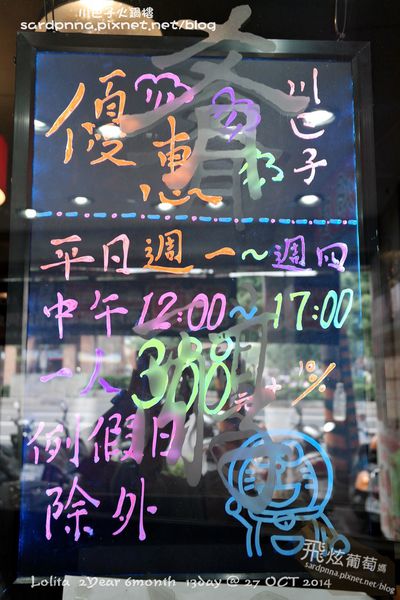 川巴子火鍋樓
sardpnna.pixnet.net/blog
川巴子
優惠
平日週一~週四
中午12:00~17:00
一人388元+10%
例假日
除外
飛炫葡萄媽
sardpnna.pixnet.net/blog
Lolita 2Year 6month 13day @ 27 OCT 2014